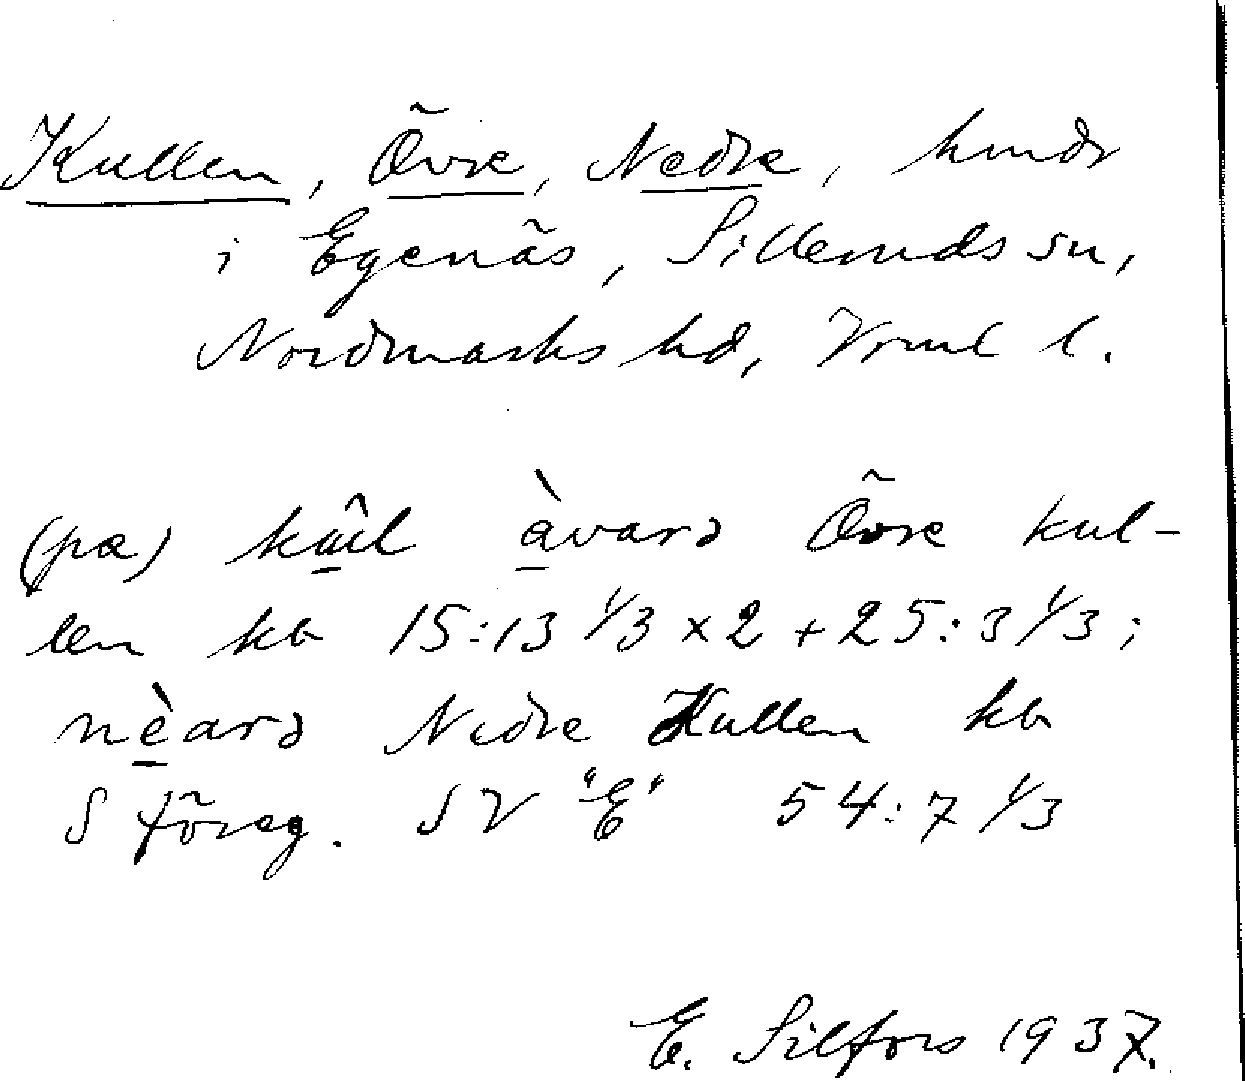 Kullen, Övre, Nedre, hmdr
i Egenäs, Silleruds sn,
Nordmarks hd, Vrml l.
(pa) kûl àvarə Övre Kul-
len kb 15:13 1/3 x 2 + 25:3 1/3;
nèarə Nedre Kullen kb
S föreg. SV "E" 54:7 1/3
E. Silfors 1937.